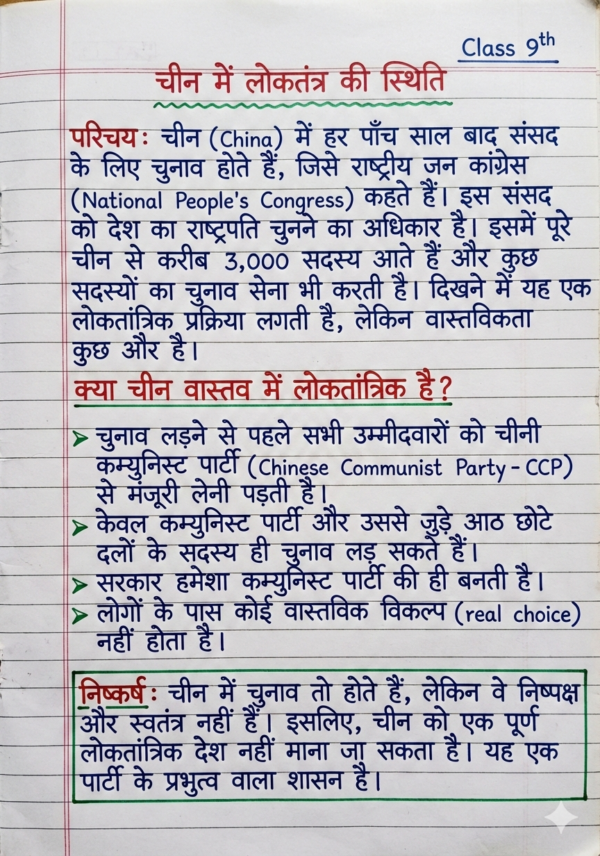 Class 9th
चीन में लोकतंत्र की स्थिति
परिचय : चीन (China) में हर पाँच साल बाद संसद
के लिए चुनाव होते हैं, जिसे राष्ट्रीय जन कांग्रेस
(National People's Congress) कहते हैं। इस संसद
को देश का राष्ट्रपति चुनने का अधिकार है। इसमें पूरे
चीन से करीब 3,000 सदस्य आते हैं और कुछ
सदस्यों का चुनाव सेना भी करती है। दिखने में यह एक
लोकतांत्रिक प्रक्रिया लगती है, लेकिन वास्तविकता
कुछ और है।
क्या चीन वास्तव में लोकतांत्रिक है?
➤ चुनाव लड़ने से पहले सभी उम्मीदवारों को चीनी
कम्युनिस्ट पार्टी (Chinese Communist Party - CCP)
से मंजूरी लेनी पड़ती है।
➤ केवल कम्युनिस्ट पार्टी और उससे जुड़े आठ छोटे
दलों के सदस्य ही चुनाव लड़ सकते हैं।
➤ सरकार हमेशा कम्युनिस्ट पार्टी की ही बनती है।
➤ लोगों के पास कोई वास्तविक विकल्प (real choice)
नहीं होता है।
निष्कर्ष : चीन में चुनाव तो होते हैं, लेकिन वे निष्पक्ष
और स्वतंत्र नहीं हैं। इसलिए, चीन को एक पूर्ण
लोकतांत्रिक देश नहीं माना जा सकता है। यह एक
पार्टी के प्रभुत्व वाला शासन है।